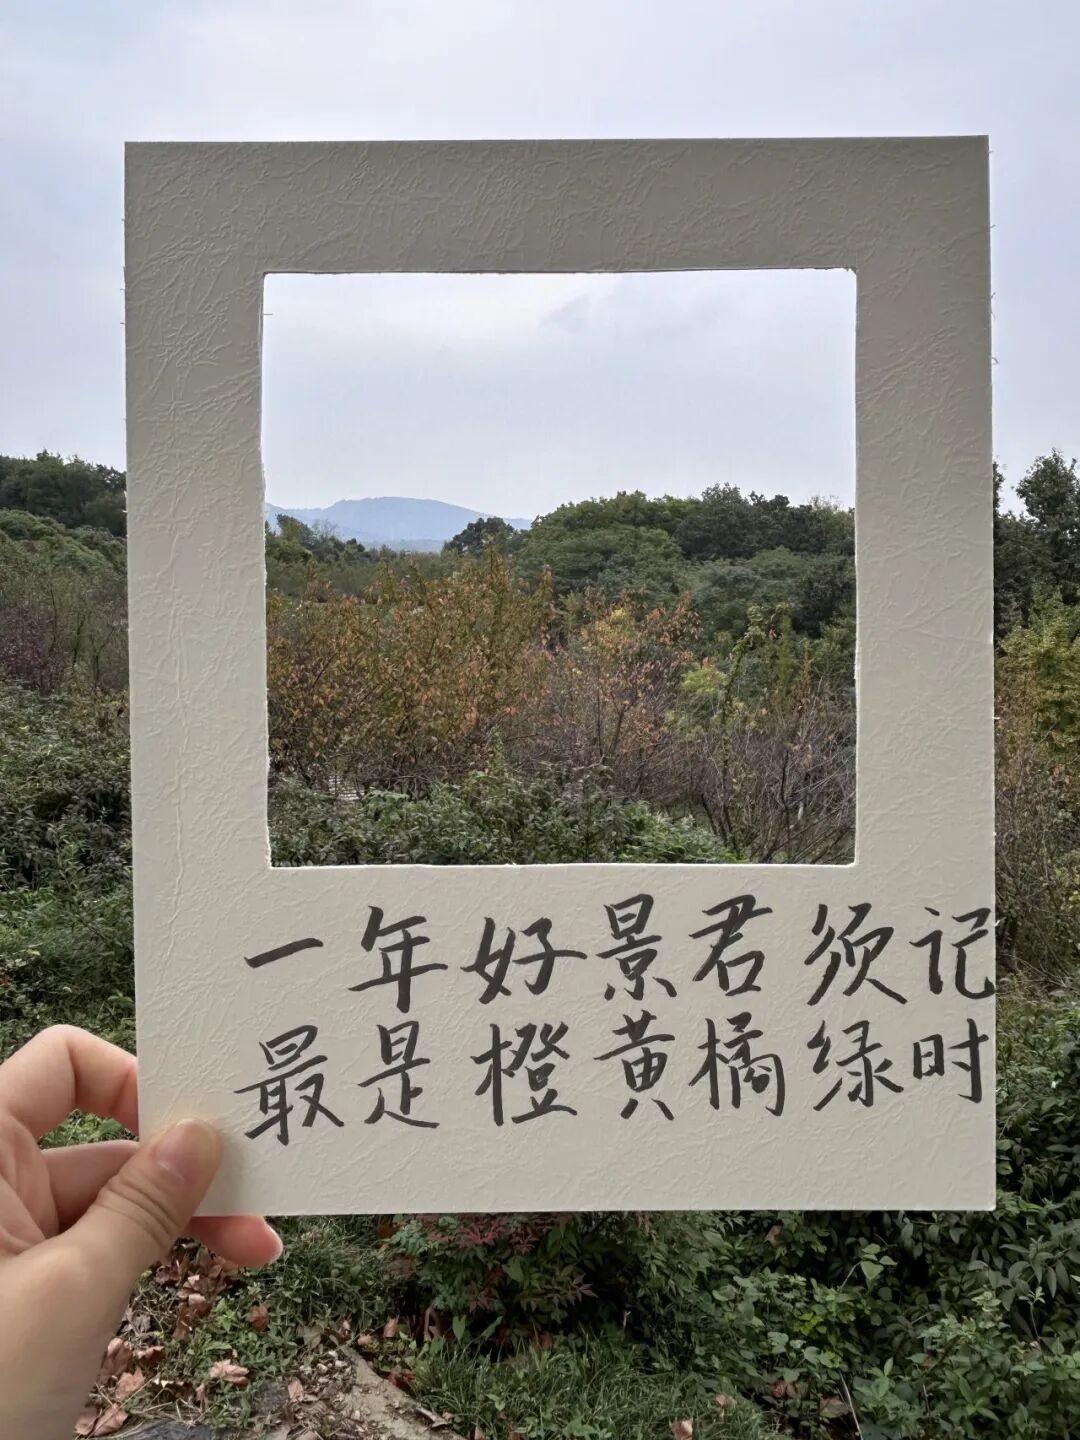 一年好景君须记
最是橙黄橘绿时